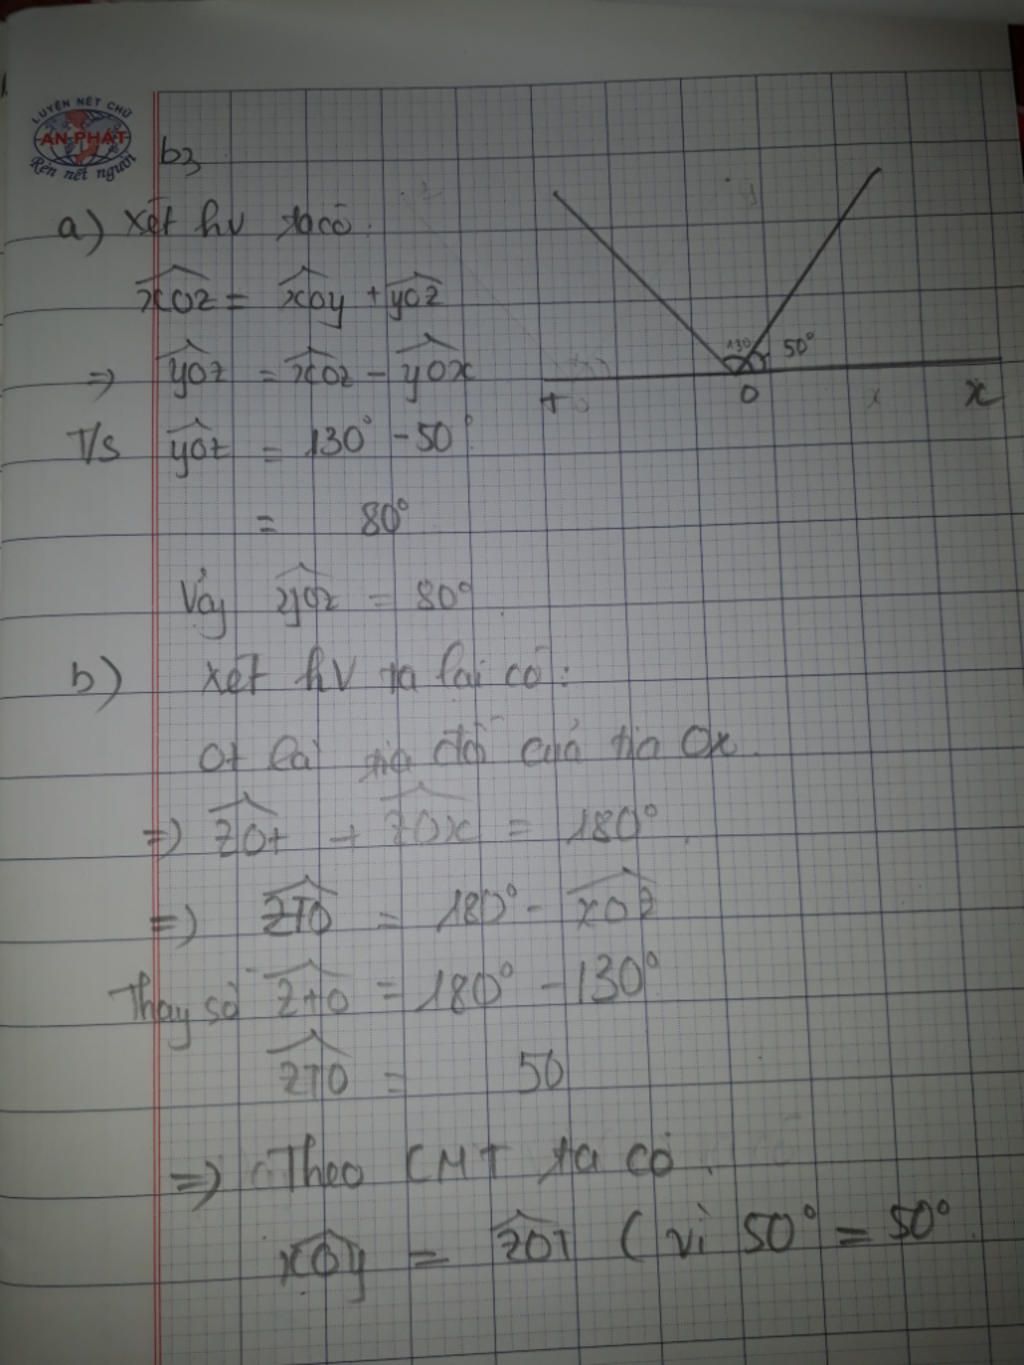 LUYỆN NÉT CHỮ
AN PHÁT
Rèn nết người
b3
a) Xét hv ta có:
xOz = xOy + yOz
=> yOz = xOz - yOx
T/S yOz = 130° - 50°
= 80°
Vậy yOz = 80°
130 50°
t O x
b) Xét hv ta lại có:
Ot là tia đối của tia Ox.
=> zOt + zOx = 180°
=> ztO = 180° - xOz
Thay số ztO = 180° - 130°
ztO = 50
=> Theo CMT ta có
xOy = zOT ( vì 50° = 50°